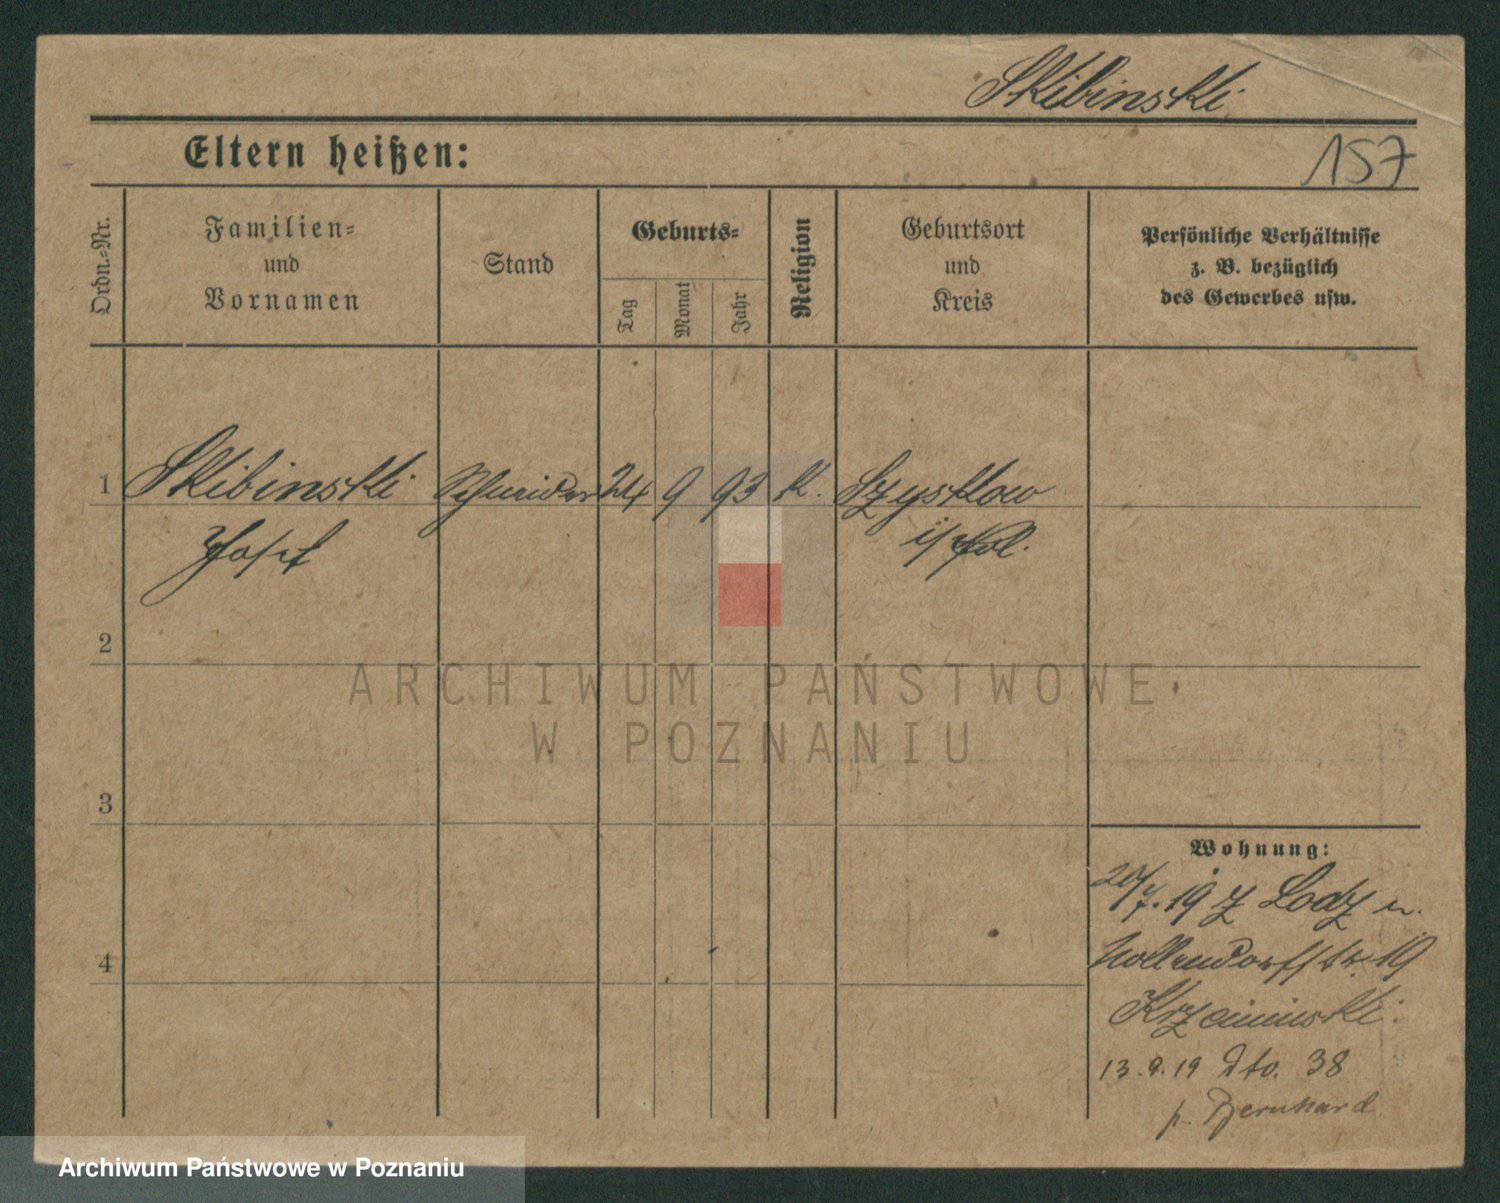 Skibinski
Eltern heißen:
157
Ordn.-Nr.
Familien-
und
Vornamen
Stand
Geburts-
Tag
Monat
Jahr
Religion
Geburtsort
und
Kreis
Persönliche Verhältnisse
z. B. bezüglich
des Gewerbes usw.
1 Skibinski Schneider 24 9 93 K. Szyskow
Josef i/Pol.
2
3
4
Wohnung:
20/7. 19 Z Lodz n.
Nollendorfstr. 19
13.9.19 dto. 38
p. Bernhard
ARCHIWUM PAŃSTWOWE
W POZNANIU
Archiwum Państwowe w Poznaniu